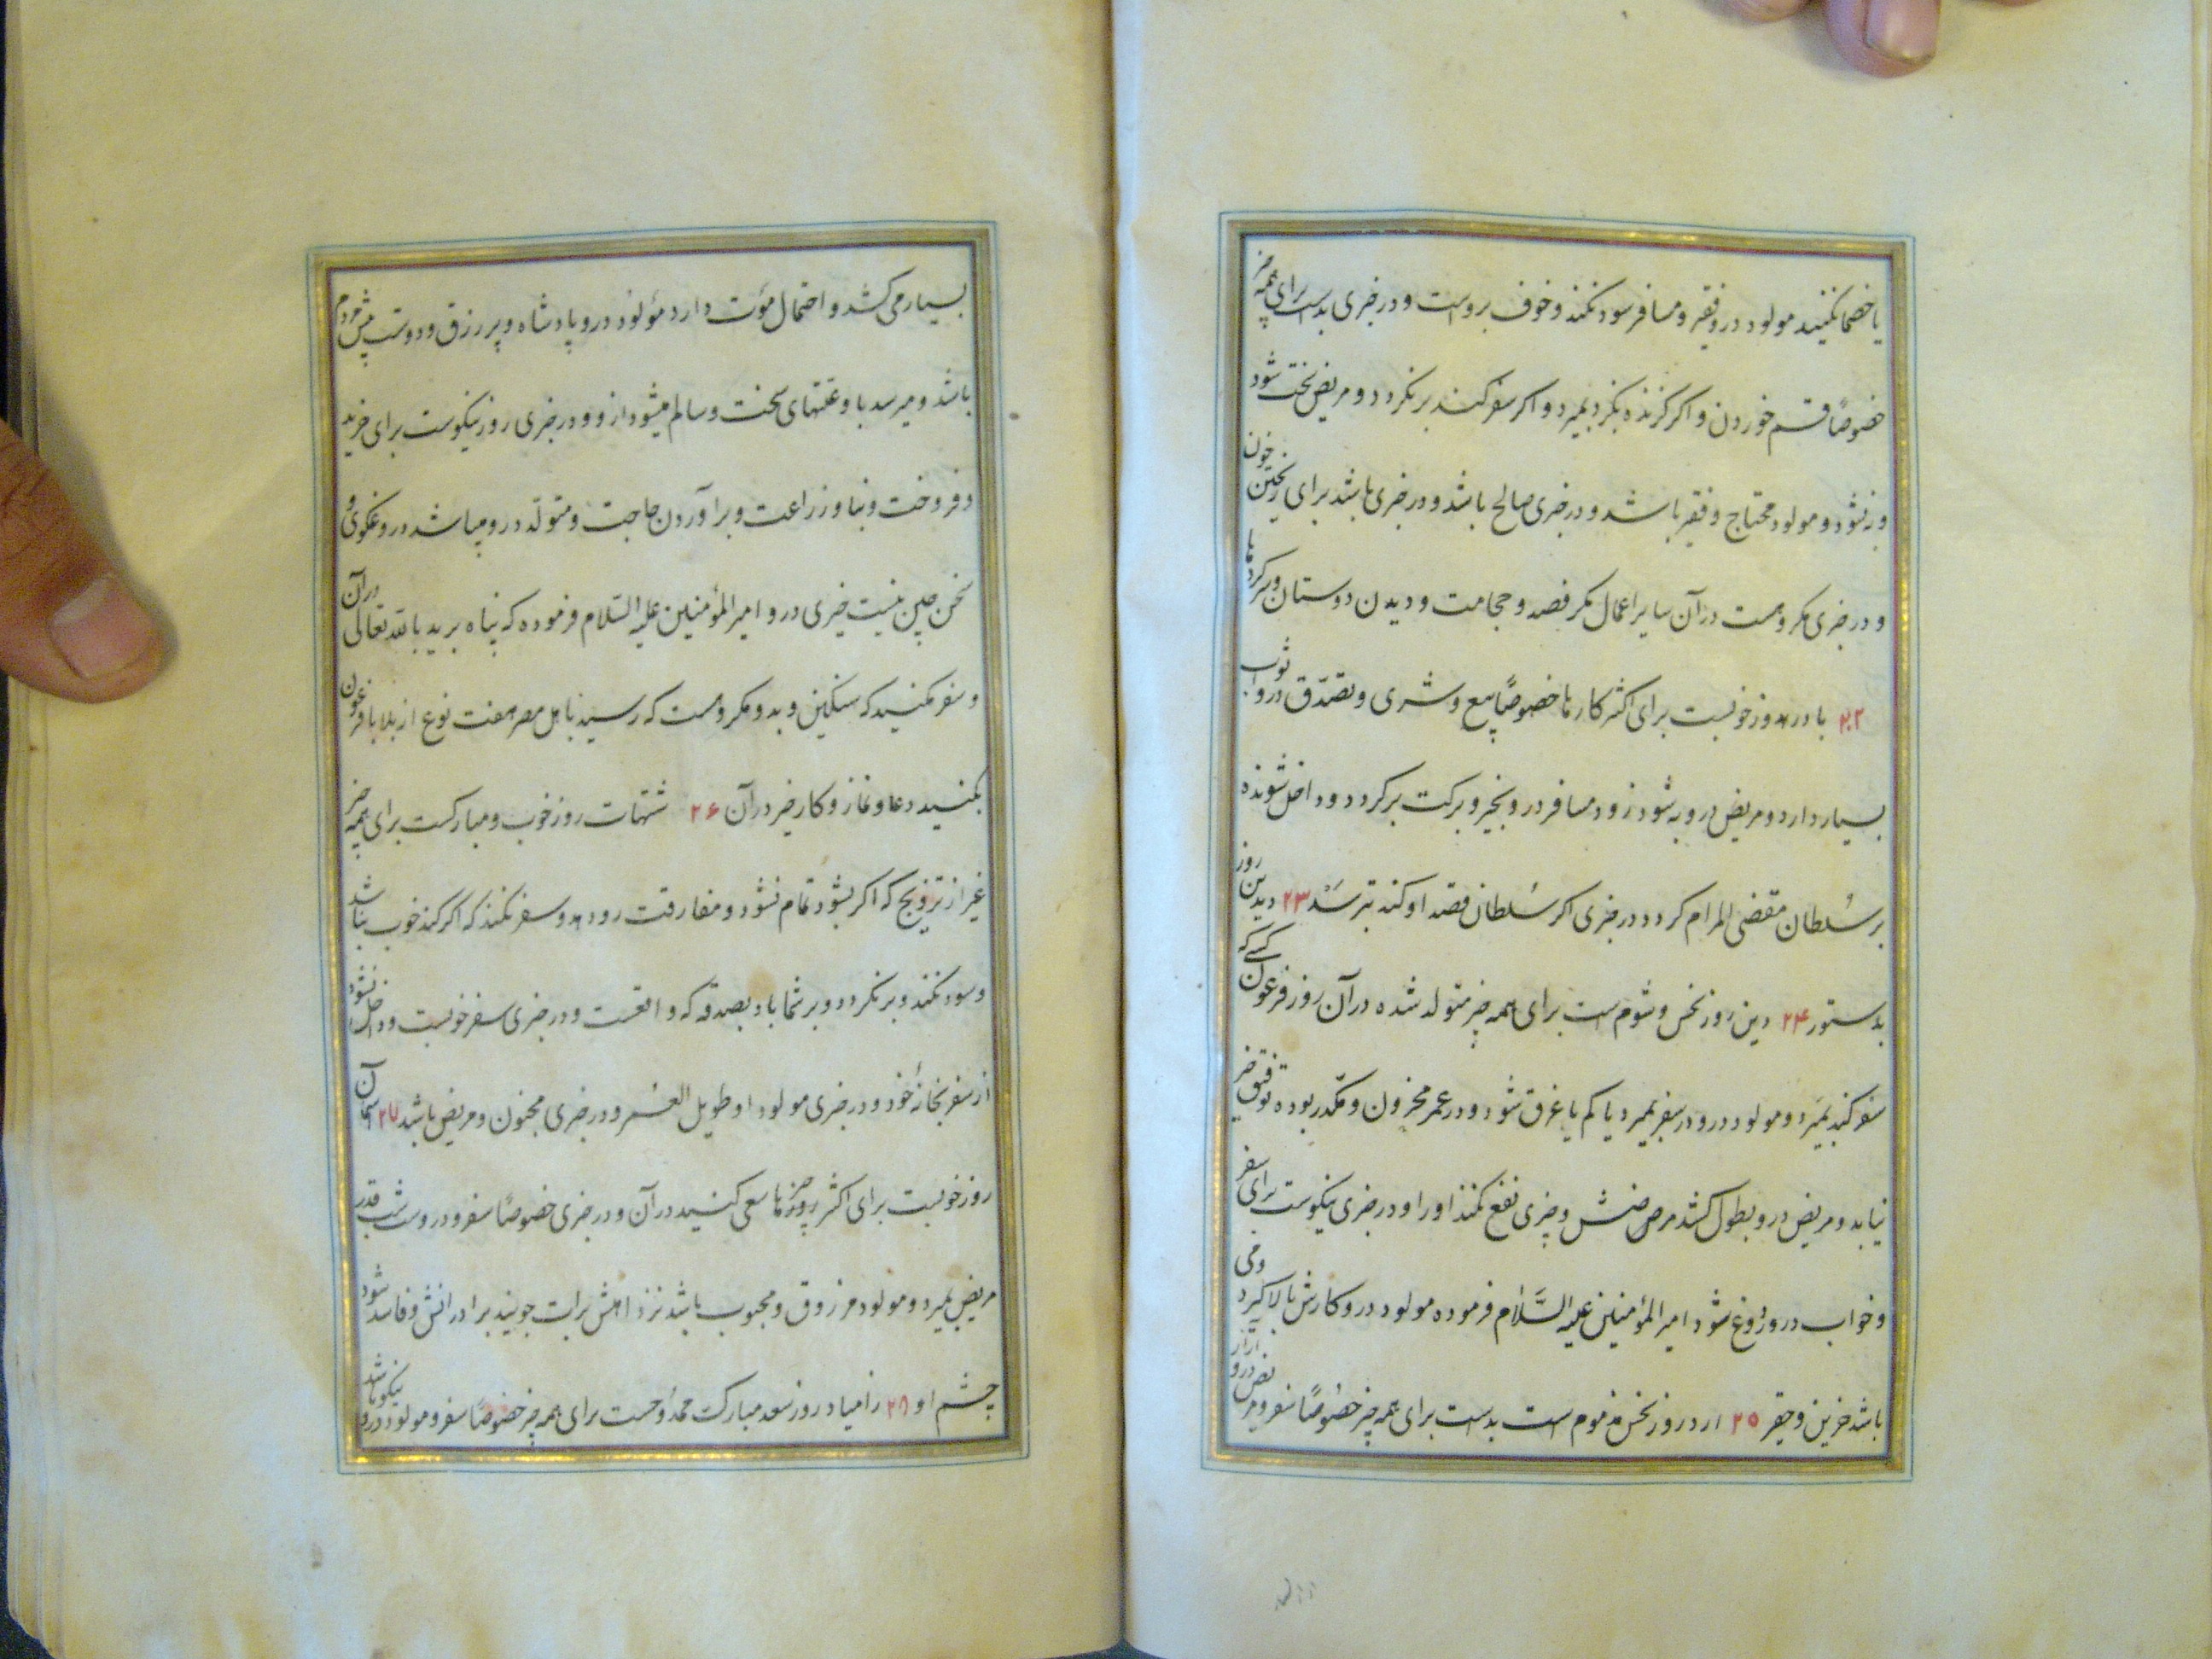 یا خصما نکنید مولود درو فقیر و مسافر سود نکند و خوف بروست و در خبری بدست برای همه چیز
خصوصاً قسم خوردن و اگر گزنده بگزد بمیرد و اگر سفر کند برنگردد و مریض سخت شود
و به نشود و مولود محتاج و فقیر باشد و در خبری صالح باشد و در خبری باشد برای ریختن خون
و در خبری مکروهست در آن سایر اعمال مگر فصد و حجامت و دیدن دوستان و سرکردها
۲۲ باد روز خوبست برای اکثر کارها خصوصاً بیع و شری و تصدّق درو ثواب
بسیار دارد و مریض درو به شود زود و مسافر درو بخیر و برکت برگردد و داخل شونده
بر سُلطان مقضی المرام گردد و در خبری اگر سُلطان قصد او کند بترسَد ۲۳ دیبدین روز
بدستور ۲۴ دین روز نحس و شوم است برای همه چیز متولد شده در آن روز فرعون کسی که
سفر کند بمیرد و مولود درو در سفر بمیرد یا کم یا غرق شود و در عمر محزون و مکدّر بوده توفیق خیر
نیابد و مریض درو بطول کشد مرضش و چیزی نفع نکند او را و در خبری نیکوست برای سفر
و خواب درو دروغ شود امیر المؤمنین علیه السَّلام فرموده مولود درو کارش بالا گیرد و می
باشد حزین و حقیر ۲۵ ارد روز نحس مذموم است بدست برای همه چیز خصُوصاً سفر و مریض درو آزار
بسیار می کشد و احتمال موت دارد مؤلود درو پادشاه و پر رزق و دوست پیش مردم
باشد و میرسد باو علّتهای سخت و سالم میشود ازو و در خبری روز نیکوست برای خرید
و فروخت و بنا و زراعت و برآوردن حاجت و متولّد درو میباشد دروغگوی و
سخن چین نیست خیری درو امیر المؤمنین علیه السّلام فرموده که پناه برید بالله تعالی در آن
و سفر نکنید که سنگین و بد و مکروهست که رسید باهل مصر هفت نوع از بلا با فرعون
بکنید دعا و نماز و کار خیر در آن ۲۶ شتهات روز خوب و مبارکست برای همه چیز
غیر از تزویج که اگر بشود تمام نشود و مفارقت رو دهد و سفر نکند که اگر کند خوب نباشد
و سود نکند و برنگردد و بر شما باد بصدقه که واقعست و در خبری سفر خوبست و داخل نشود
از سفر بخانهٔ خود و در خبری مولود او طویل العمر و در خبری مجنون و مریض باشد ۲۷ آسمان
روز خوبست برای اکثر چیزها سعی کنید در آن و در خبری خصوصاً سفر و دروست شب قدر
مریض بمیرد و مولود مرزوق و محبوب باشد نزد اهلش برات جویند برادرانش و فاسد شود
چشم او ۲۸ رامیاد روز سعد مبارکست ممدُوحست برای همه چیز خصُوصاً سفر و مولود درو نیکو باشد